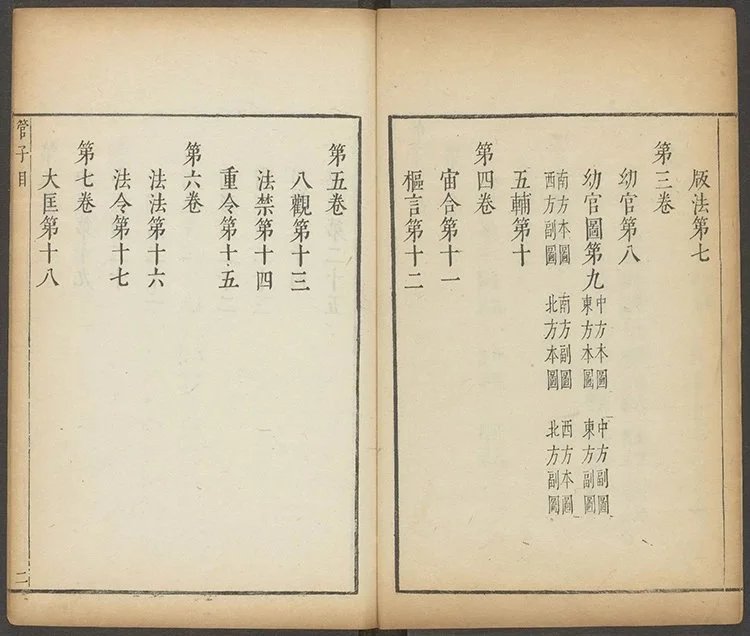 版法第七
第三卷
幼官第八
幼官圖第九
中方本圖 中方副圖
東方本圖 東方副圖
南方本圖 南方副圖 西方本圖
西方副圖 北方本圖 北方副圖
五輔第十
第四卷
宙合第十一
樞言第十二
第五卷
八觀第十三
法禁第十四
重令第十五
第六卷
法法第十六
法令第十七
第七卷
大匡第十八
管子目 二